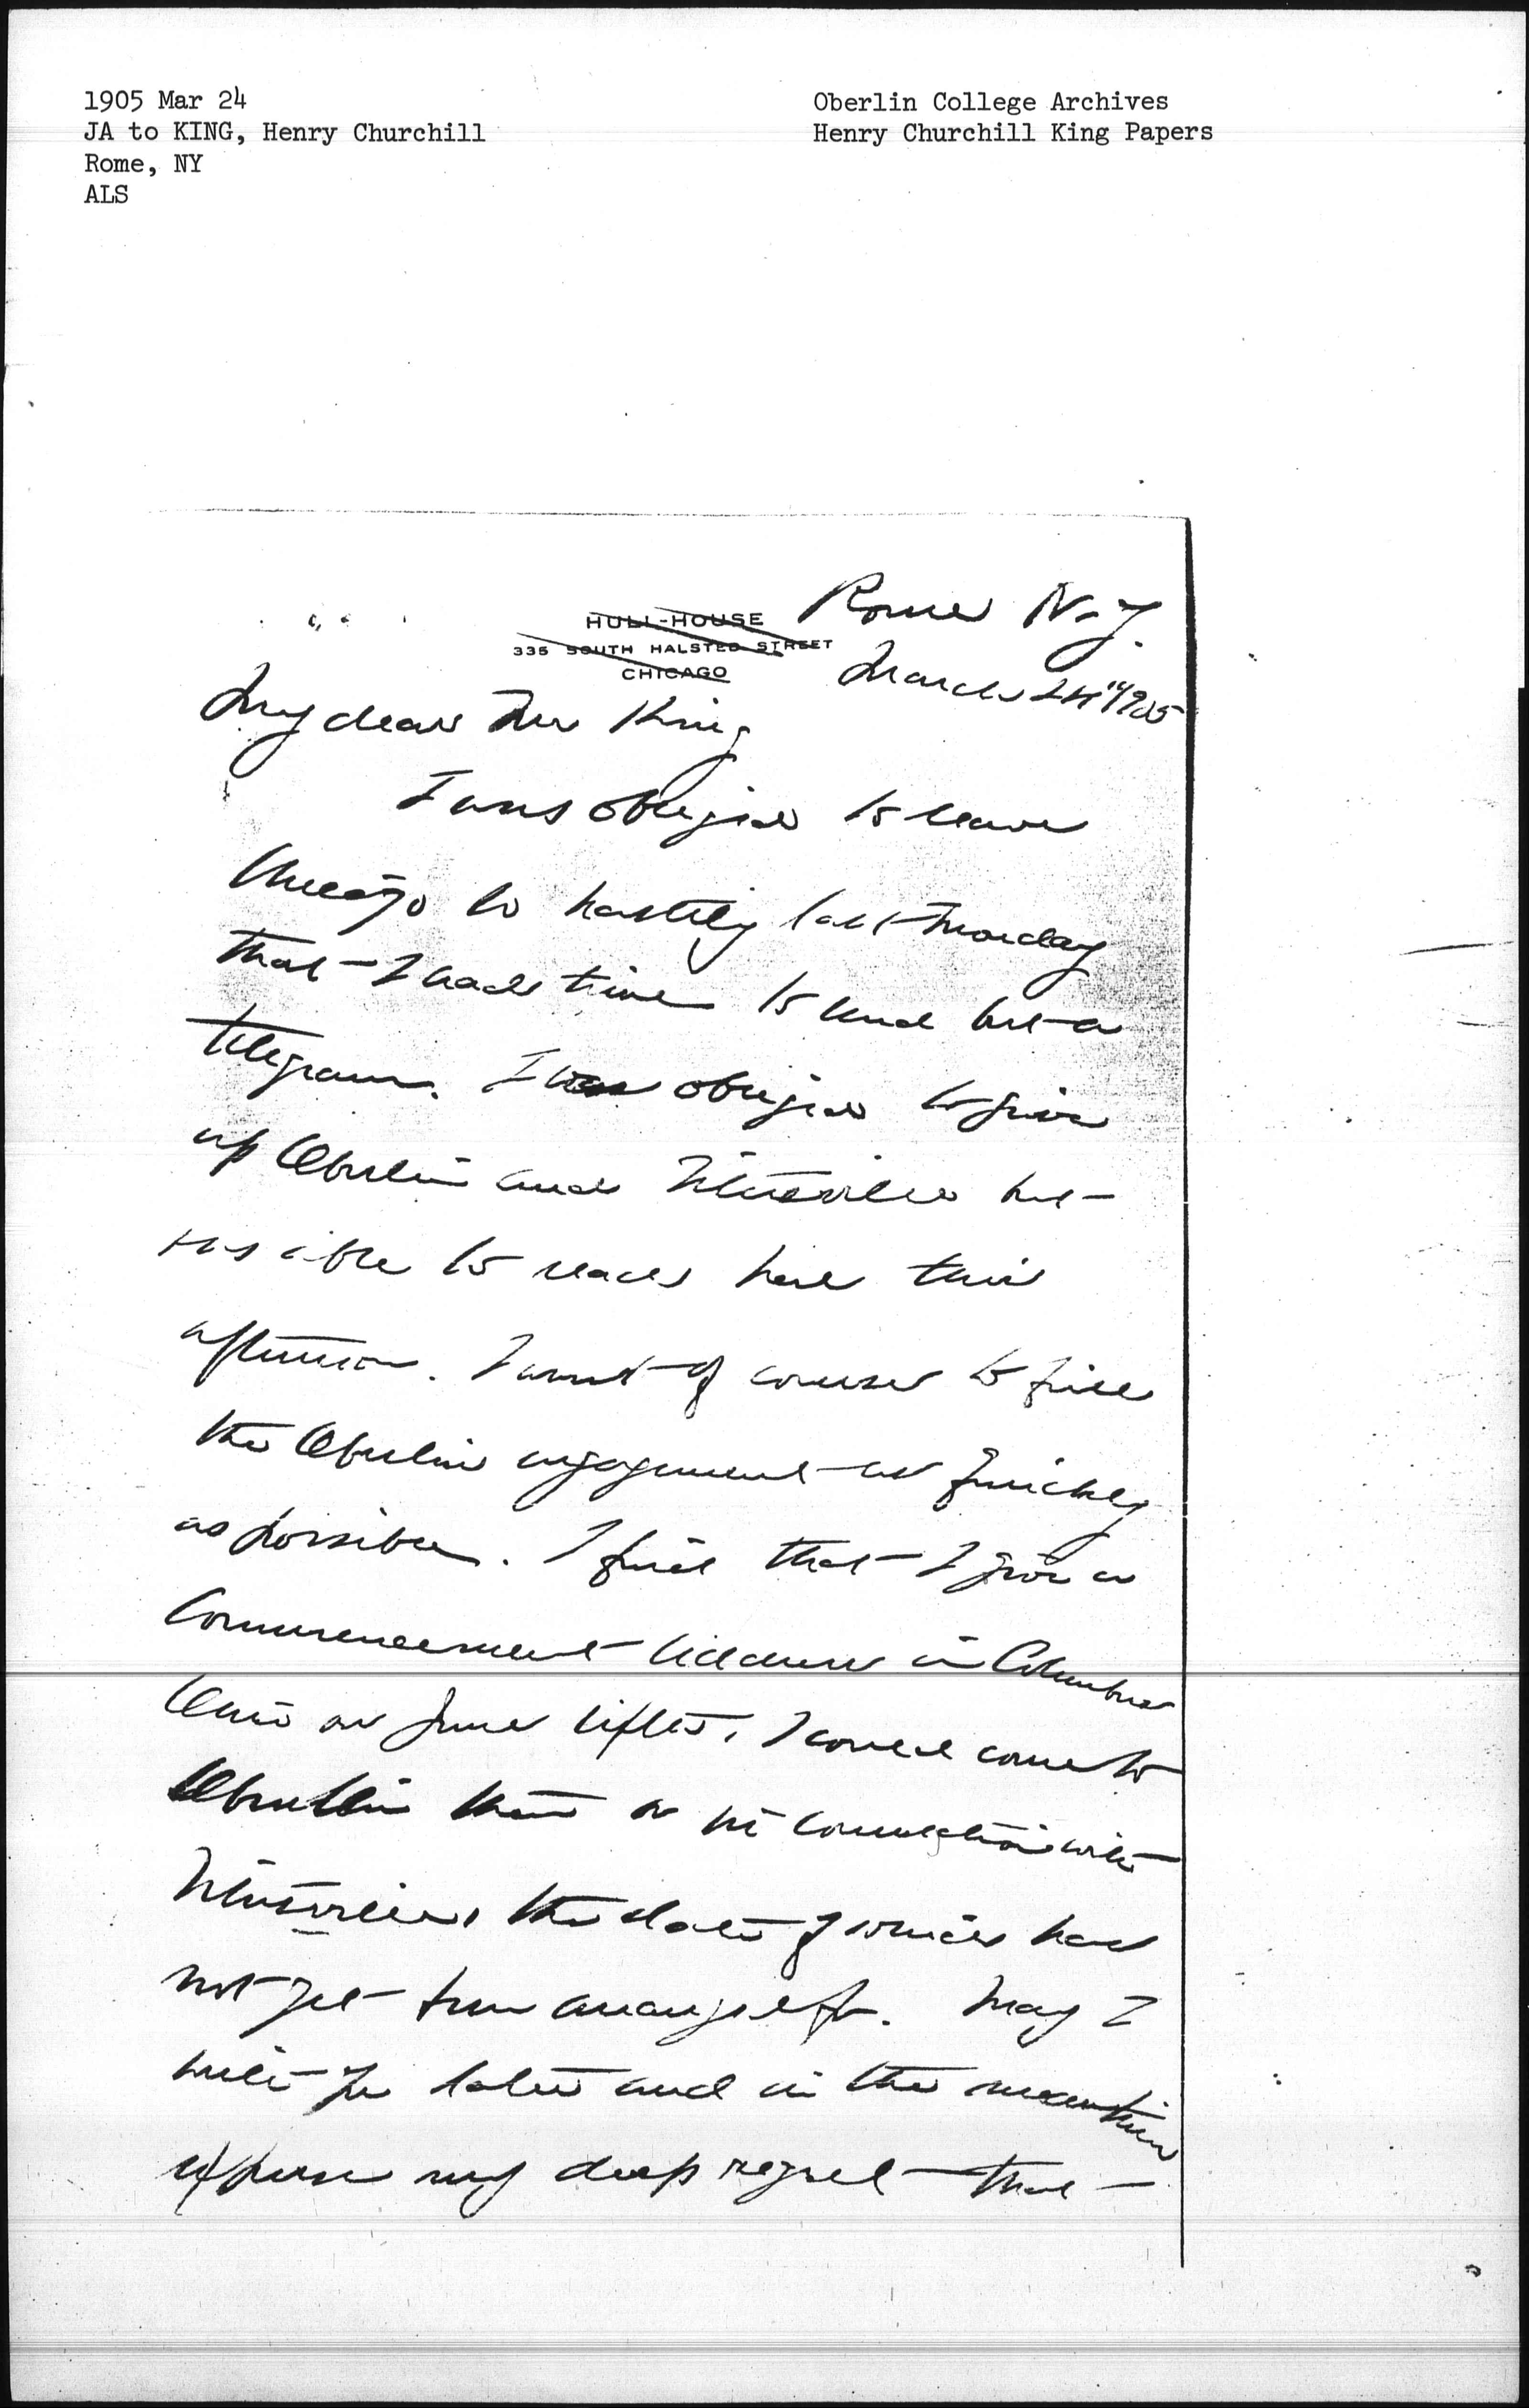 1905 Mar 24
JA to KING, Henry Churchill
Rome, NY
ALS
Oberlin College Archives
Henry Churchill King Papers
HULL-HOUSE
335 SOUTH HALSTED STREET
CHICAGO
Rome N.Y.
March 24" 1905
My dear Mr King
I was obliged to leave
Chicago so hastily last Monday
that I had time to send but a
telegram. I was obliged to give
up Oberlin and Titusville but
was able to reach here this
afternoon. I want of course to fill
the Oberlin engagement as quickly
as possible. I find that I give a
Commencement address in Columbus
Ohio on June fifth. I could come to
Oberlin then or in connection with
Titusville, the date of which has
not yet been arranged for. May I
write you later and in the meantime
express my deep regret that